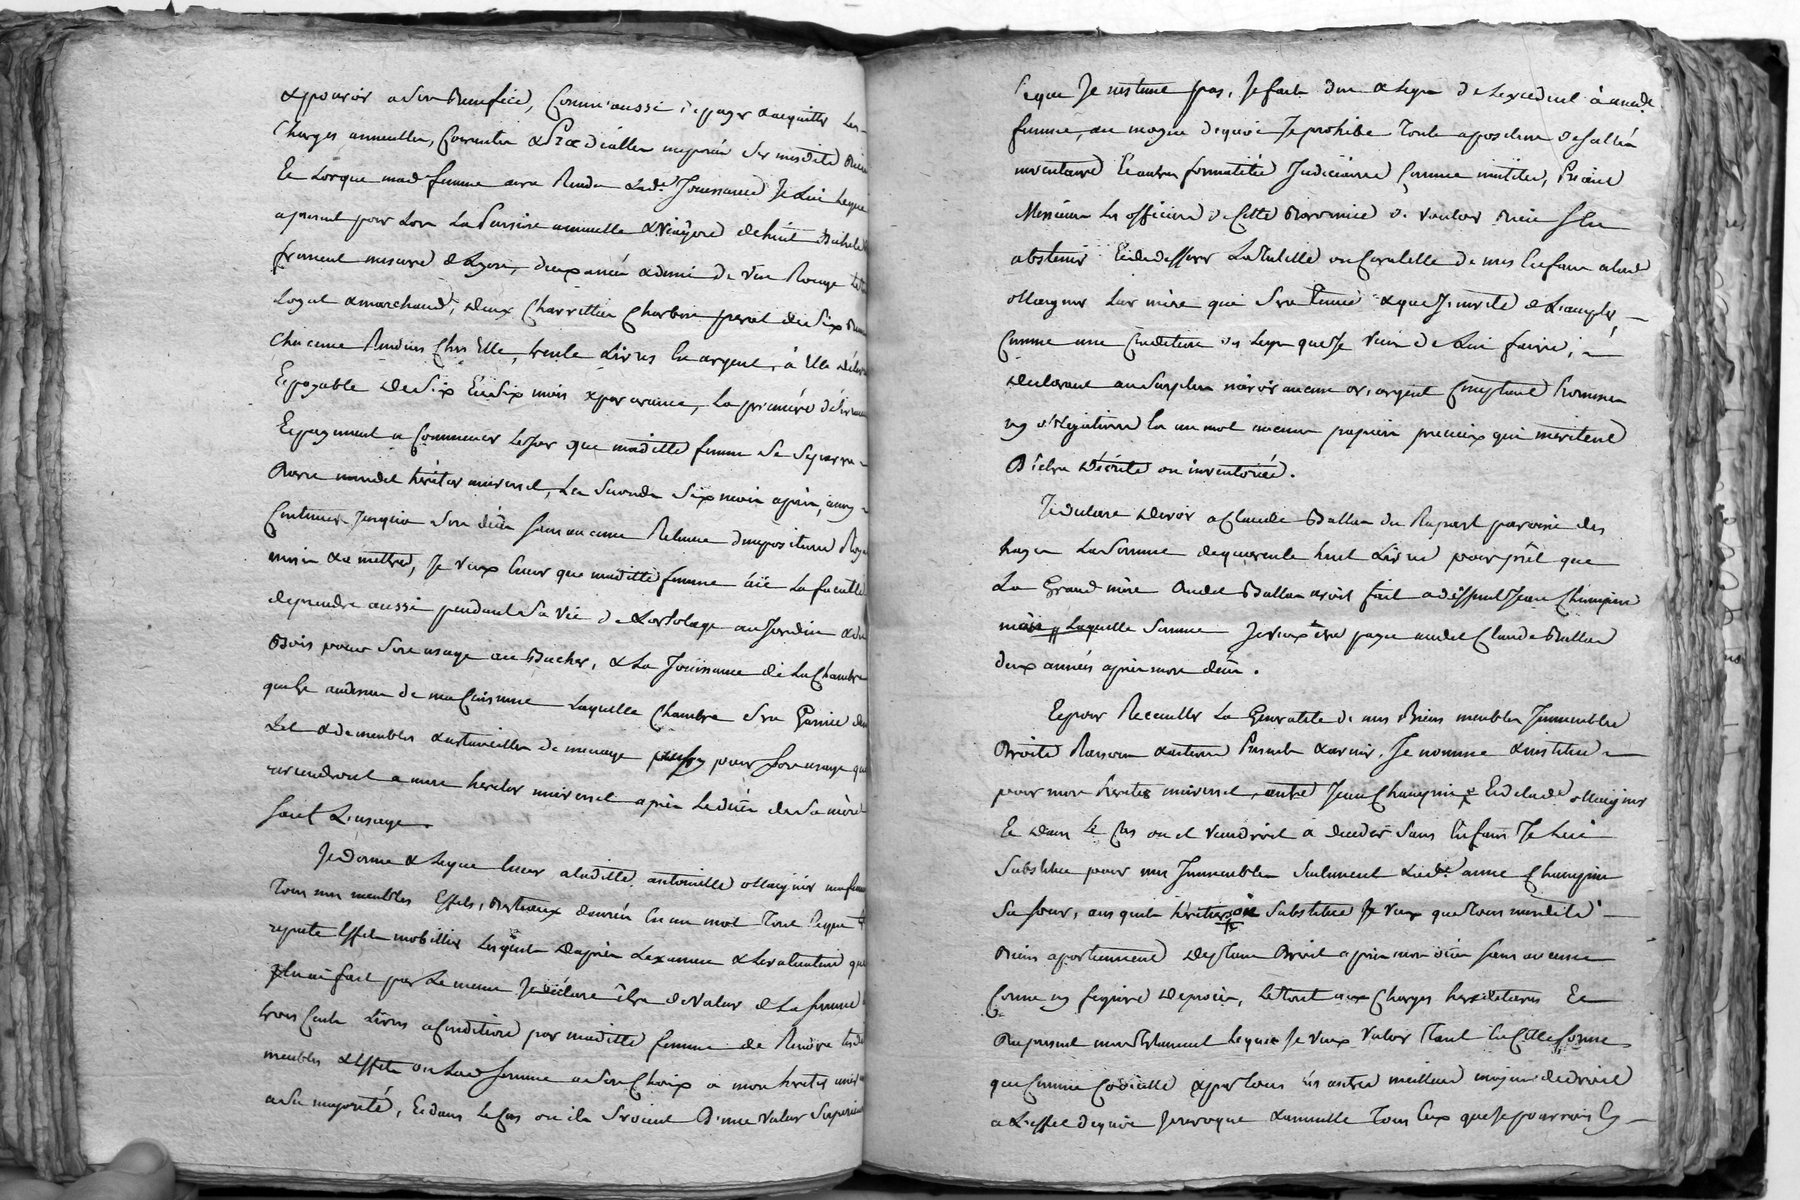 & pouvoir a son Benefice, Comm'aussi d'y payer & acquitter les
Charges annuelles, Courantes & Predialles imposées sur mesdits Biens
Et Lorque mad. femme aura Rendu Lad.e Jouissance Je Lui Legue
apresent pour Lors La Pension annuelle & Viagere de huit Bichets
froment mesure de Lyon, deux anées & demi de vin Rouge
Loyal & marchand, deux Charrettées Charbon pesant dix
Chacune Rendues Chés Elle, trente Livres En argent, à Elle
Et payable de Six En Six mois & par avance, La premiére
Et payement a Commencer Le Jour que maditte femme Se Separera
Avec mondit héritier universel, La Seconde Six mois après, ainsy
Continuer Jusqu'a Son décés Sans aucune Retenue d'impositions
mises & a mettre, Je veux Encor que maditte femme aïe La faculté
de prendre aussi pendant Sa vie de L'ortolage au Jardin & du
Bois pour Son usage au Bucher, & La Jouissance de La Chambre
qui Est audessus de ma Cuisine Laquelle Chambre Sera Garnie d'un
Lit & de meubles & ustancilles de menage pour Son usage qui
reviendront a mon heritier universel après Le décés de Sa mère
Sauf L'usage.
Je donne & Legue Encor a laditte antoinette Magnin ma femme
Tous mes meubles Effets, Bestiaux denrées En un mot Tout Ce que
repute Effet mobillier Lesquels d'après L'examen & L'evaluation que
J'en ai fait par Le menu Je déclare être de Valeur de La Somme
trois Cents Livres a Condition par maditte femme de Rendre
meubles & Effets ou Lad. Somme a Son Choix a mon heritier
a Sa majorité, Et dans Le Cas ou ils Seroient D'une Valeur Superieure
Ce que Je n'estime pas, Je fait don & Legue de L'excedent à mad.e
femme, au moyen de quoi Je prohibe Toute apposition de Sellés
inventaire Et autres formalités Judiciaires Comme inutiles, Priant
Messieurs Les officiers de Cette Province de vouloir Bien S'En
abstenir Et de defferer La Tutelle ou Curatelle de mes Enfans a lad.
Magnin Leur mère qui Sera Tenue & que J'invite de L'accepter
Comme une Condition des Legs que Je viens de Lui faire,
declarant au Surplus n'avoir aucun or, argent Comptant Promesses
ny obligations En un mot aucuns papiers precieux qui meritent
D'être décrits ou inventoriés.
Je declare devoir a Claude Ballan du Rapart paroisse des
hayes La Somme de quarente huit Livres pour prêt que
La Grand mère dudit Ballan avoit fait a deffunt Jean Champin
Laquelle Somme Je veux être payée audit Claude Ballan
deux années après mon décés.
Et pour Recueillir La Generalité de mes Biens meubles Immeubles
Droits Raisons & actions Présents & avenir, Je nomme & institue
pour mon heritier universel, Jean Champin Et de lad.e Magnin
Et dans Le Cas ou il viendroit a deceder Sans Enfans Je Lui
Substitue pour mes Immeubles Seulement Lad.e anne Champin
Sa Sœur, aus quels heritiers Substitué Je veux que Tous mesdits
Biens apartiennent de plein Droit après mon décés Sans aucune
forme ny figure de procès, Le tout aux Charges hereditaires Et
du present mon Testament Lequel Je veux valoir Tant En Cette forme
que Comme Codicille & par Tous Les autres meilleurs moyens de droit
a L'effet de quoi Je revoque & annulle Tous Ceux que Je pourrois En